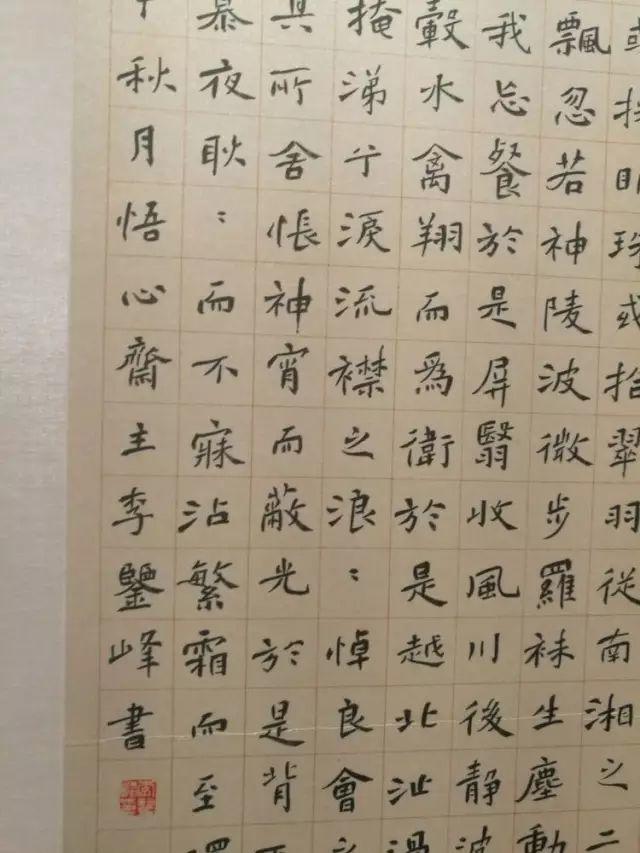 或採明珠或拾翠羽從南湘之二
飄忽若神陵波微步羅袜生塵動
我忘餐於是屏翳收風川後靜波
轂水禽翔而爲衛於是越北沚過
掩涕兮淚流襟之浪〻悼良會之
具所舍悵神宵而蔽光於是背
慕夜耿〻而不寐沾繁霜而至
秋月悟心齋主李鑒峰書